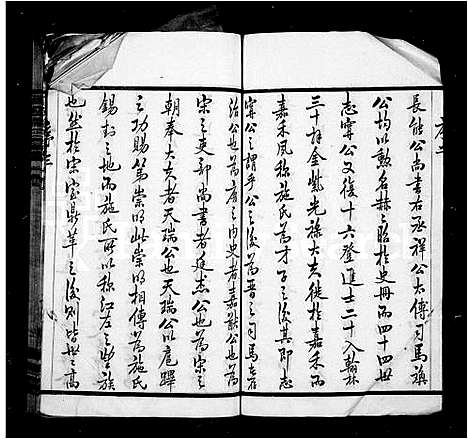 長能公尚書右丞祥公太傅司馬旗
公均以勳名赫之昭於史冊而四十四世
志寧公又復十六登進士二十入翰林
三十拜金紫光祿大夫徙於嘉禾而
嘉禾夙称施氏為才子之後其即志
寧公之謂乎公之後為晋之司馬者
治公也為唐之內史者嘉猷公也為
宋之吏部尚書者延杰公也為宋之
朝奉大夫者天瑞公也天瑞公以扈蹕
之功賜第崇明此崇明相傳為施氏
錫封之地而施氏所以称江左之望族
也然於宋室鼎革之後則皆世之高